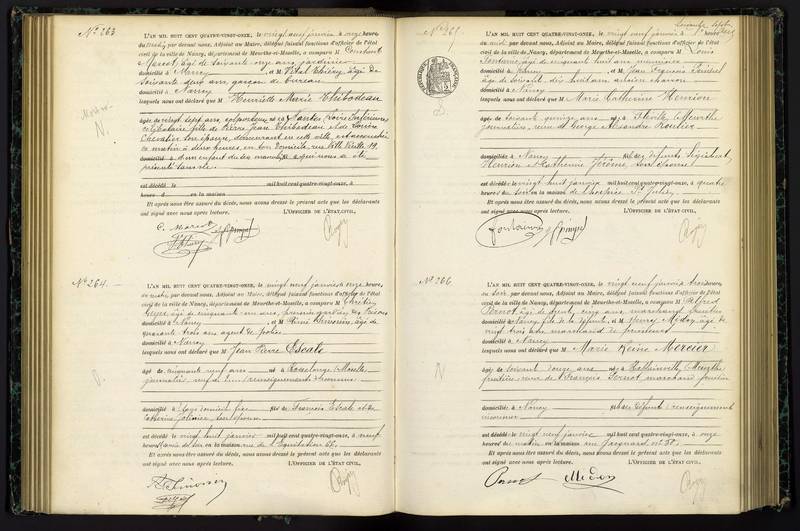 N° 263
L'AN MIL HUIT CENT QUATRE-VINGT-ONZE, le vingt neuf janvier à onze heures
du matin, par devant nous, Adjoint au Maire, délégué faisant fonctions d'officier de l'état
civil de la ville de Nancy, département de Meurthe-et-Moselle, a comparu M
Marcot, âgé de soixante onze ans, jardinier
domicilié à Nancy et M Vital Thiéry, âgé de
soixante deux ans, garçon de bureau
domicilié à Nancy
lesquels nous ont déclaré que M Henriette Marie Thibodeau
âgée de vingt sept ans, née à Nantes (Loire Inférieure)
célibataire fille de Pierre Jean Thibodeau et de Louise
Chevalier son épouse, demeurant en cette ville, est accouchée
ce matin à deux heures, en son domicile, rue Ville Vieille 19,
domicilié à d'un enfant du sexe masculin qui nous a été
présenté sans vie
est décédé le mil huit cent quatre-vingt-onze, à
heure d en sa maison
Et après nous être assuré du décès, nous avons dressé le présent acte que les déclarants
ont signé avec nous après lecture. L'OFFICIER DE L'ÉTAT CIVIL,
C. Marcot
N.
N° 264.
L'AN MIL HUIT CENT QUATRE-VINGT-ONZE, le vingt neuf janvier à onze heures,
du matin, par devant nous, Adjoint au Maire, délégué faisant fonctions d'officier de l'état
civil de la ville de Nancy, département de Meurthe-et-Moselle, a comparu M Chrétien
âgé de cinquante un ans, premier gardien des prisons
domicilié à Nancy et M René Simonin, âgé de
quarante trois ans agent de police
domicilié à Nancy
lesquels nous ont déclaré que M Jean Pierre Escale
âgé de cinquante neuf ans né à (Moselle)
journalier, veuf de (renseignements inconnus)
domicilié à sans domicile fixe fils de François Escale et de
Catherine
est décédé le vingt huit janvier mil huit cent quatre-vingt-onze, à neuf
heures du en la maison rue de l'Équitation
Et après nous être assuré du décès, nous avons dressé le présent acte que les déclarants
ont signé avec nous après lecture. L'OFFICIER DE L'ÉTAT CIVIL,
N° 265
RÉPUBLIQUE FRANÇAISE
L'AN MIL HUIT CENT QUATRE-VINGT-ONZE, le vingt neuf janvier à heures
du par devant nous, Adjoint au Maire, délégué faisant fonctions d'officier de l'état
civil de la ville de Nancy, département de Meurthe-et-Moselle, a comparu M Louis
âgé de cinquante huit ans menuisier
domicilié à Nancy et M Jean François
âgé de soixante dix huit ans, ancien charron
domicilié à Nancy
lesquels nous ont déclaré que M Marie Catherine Henrion
âgée de soixante quinze ans, née à (Meurthe)
journalière, veuve de George Alexandre
domiciliée à Nancy fille des défunts Sigisbert
Henrion et Catherine Jérôme, son épouse
est décédée le vingt huit janvier mil huit cent quatre-vingt-onze, à quatre
heures du soir en la maison de l'hospice St Julien
Et après nous être assuré du décès, nous avons dressé le présent acte que les déclarants
ont signé avec nous après lecture. L'OFFICIER DE L'ÉTAT CIVIL,
N° 266
L'AN MIL HUIT CENT QUATRE-VINGT-ONZE, le vingt neuf janvier à trois heures
du soir, par devant nous, Adjoint au Maire, délégué faisant fonctions d'officier de l'état
civil de la ville de Nancy, département de Meurthe-et-Moselle, a comparu M Alfred
Pernot, âgé de trente cinq ans, marchand fruitier
domicilié à Nancy, fils de la défunte, et M Henry Médon âgé de
vingt trois ans marchand de
domicilié à Nancy
lesquels nous ont déclaré que M Marie Reine Mercier
âgée de soixante douze ans, née à (Meurthe)
fruitière, veuve de François Pernot marchand fruitier
domiciliée à Nancy fille des défunts (renseignements
inconnus)
est décédée le vingt neuf janvier mil huit cent quatre-vingt-onze, à onze
heures du matin en sa maison rue
Et après nous être assuré du décès, nous avons dressé le présent acte que les déclarants
ont signé avec nous après lecture. L'OFFICIER DE L'ÉTAT CIVIL,
Pernot Médon
N